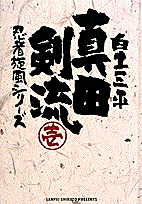 白土三平
真田
剣流
壱
忍者旋風シリーズ
SANPEI SHIRATO PRESENTS